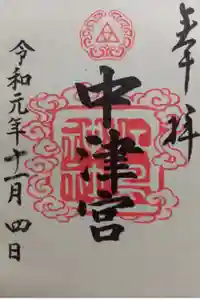 奉拝
中津宮
令和元年十一月四日